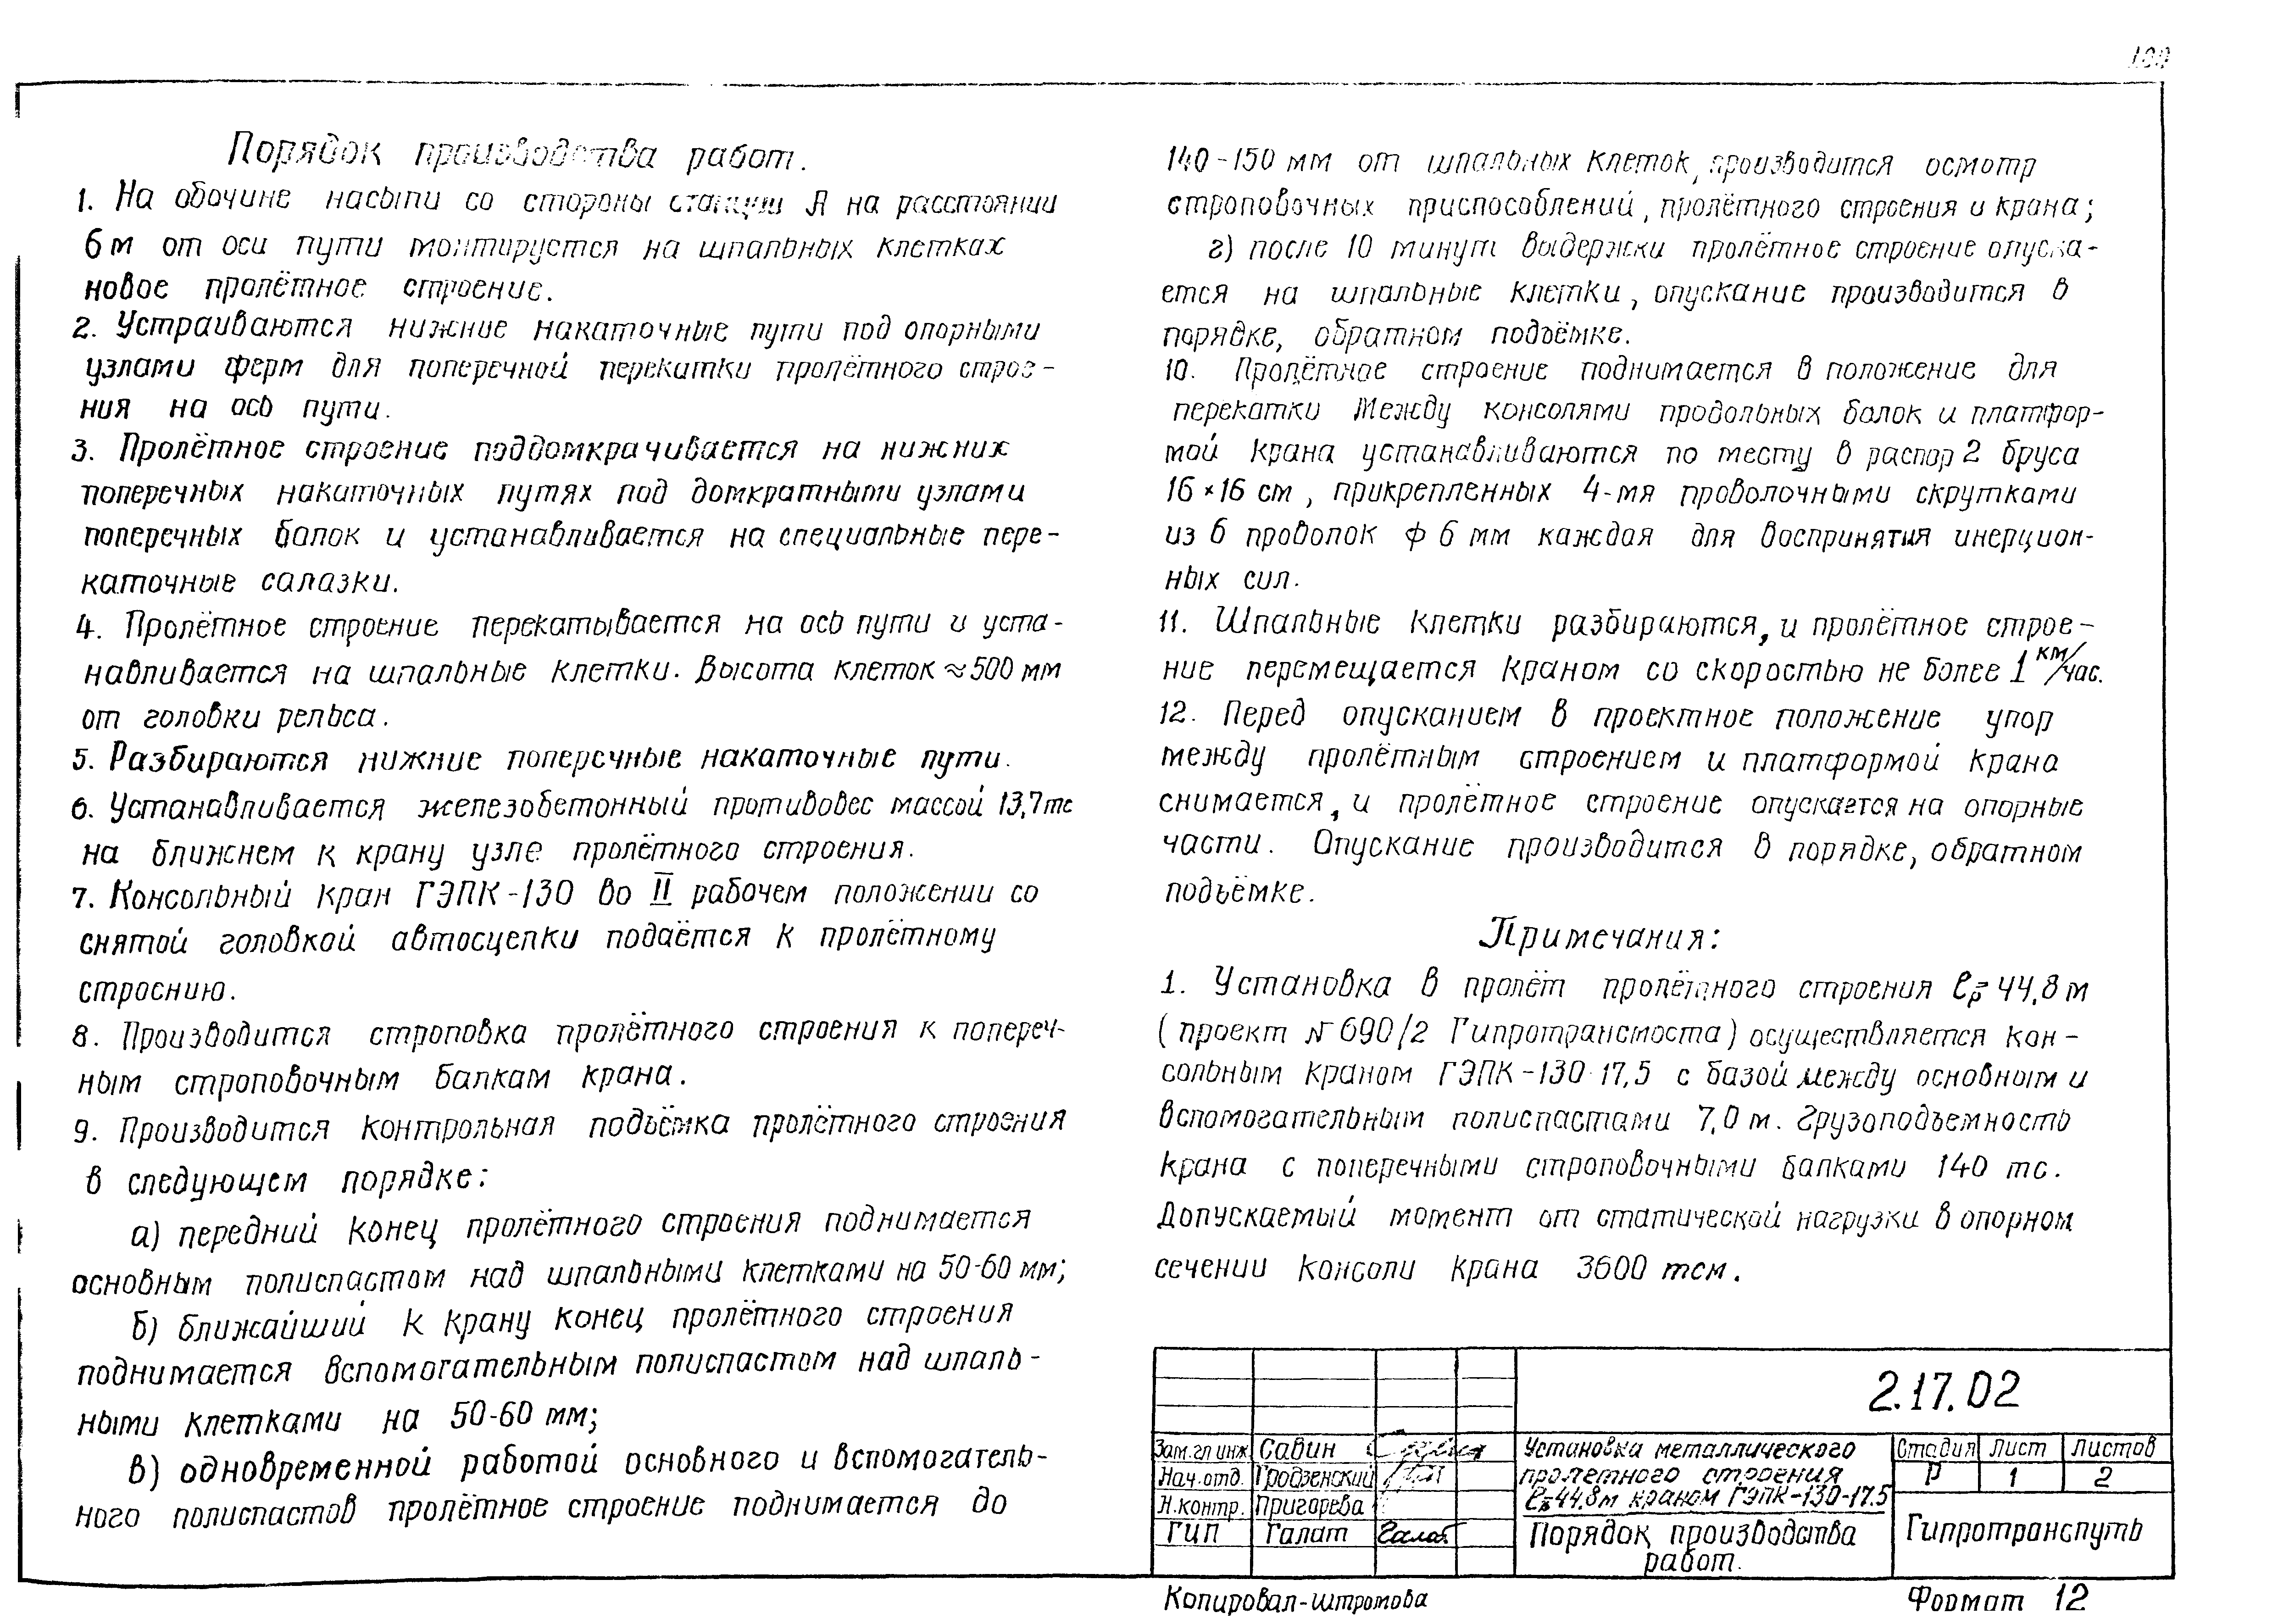 Порядок производства работ.
1. На обочине насыпи со стороны станции А на расстоянии
6м от оси пути монтируется на шпальных клетках
новое пролётное строение.
2. Устраиваются нижние накаточные пути под опорными
узлами ферм для поперечной перекатки пролётного строе-
ния на ось пути.
3. Пролётное строение поддомкрачивается на нижних
поперечных накаточных путях под домкратными узлами
поперечных балок и устанавливается на специальные пере-
каточные салазки.
4. Пролётное строение перекатывается на ось пути и уста-
навливается на шпальные клетки. Высота клеток ≈500 мм
от головки рельса.
5. Разбираются нижние поперечные накаточные пути.
6. Устанавливается железобетонный противовес массой 13,7тс
на ближнем к крану узле пролётного строения.
7. Консольный кран ГЭПК-130 во II рабочем положении со
снятой головкой автосцепки подаётся к пролётному
строению.
8. Производится строповка пролётного строения к попереч-
ным строповочным балкам крана.
9. Производится контрольная подъёмка пролётного строения
в следующем порядке:
а) передний конец пролётного строения поднимается
основным полиспастом над шпальными клетками на 50-60 мм;
б) ближайший к крану конец пролётного строения
поднимается вспомогательным полиспастом над шпаль-
ными клетками на 50-60 мм;
в) одновременной работой основного и вспомогатель-
ного полиспастов пролётное строение поднимается до
140-150 мм от шпальных клеток, производится осмотр
строповочных приспособлений, пролётного строения и крана;
г) после 10 минут выдержки пролётное строение опуска-
ется на шпальные клетки, опускание производится в
порядке, обратном подъёмке.
10. Пролётное строение поднимается в положение для
перекатки Между консолями продольных балок и платфор-
мой крана устанавливаются по месту в распор 2 бруса
16×16 см, прикрепленных 4-мя проволочными скрутками
из 6 проволок ф 6 мм каждая для восприятия инерцион-
ных сил.
11. Шпальные клетки разбираются, и пролётное строе-
ние перемещается краном со скоростью не более 1 км/час.
12. Перед опусканием в проектное положение упор
между пролётным строением и платформой крана
снимается, и пролётное строение опускается на опорные
части. Опускание производится в порядке, обратном
подъёмке.
Примечания:
1. Установка в пролёт пролётного строения ℓр=44,8м
(проект №690/2 Гипротрансмоста) осуществляется кон-
сольным краном ГЭПК-130 17,5 с базой между основным и
вспомогательным полиспастами 7,0 м. Грузоподъемность
крана с поперечными строповочными балками 140 тс.
Допускаемый момент от статической нагрузки в опорном
сечении консоли крана 3600 тсм.
2.17.02
Зам.гл инж Савин
Нач.отд. Гродзенский
Н.контр. Пригорева
ГИП Галат Галат
Установка металлического
пролетного строения
ℓр=44,8м краном ГЭПК-130-17.5
Порядок производства
работ.
Стадия Лист Листов
Р 1 2
Гипротранспуть
Копировал-штромова
Формат 12